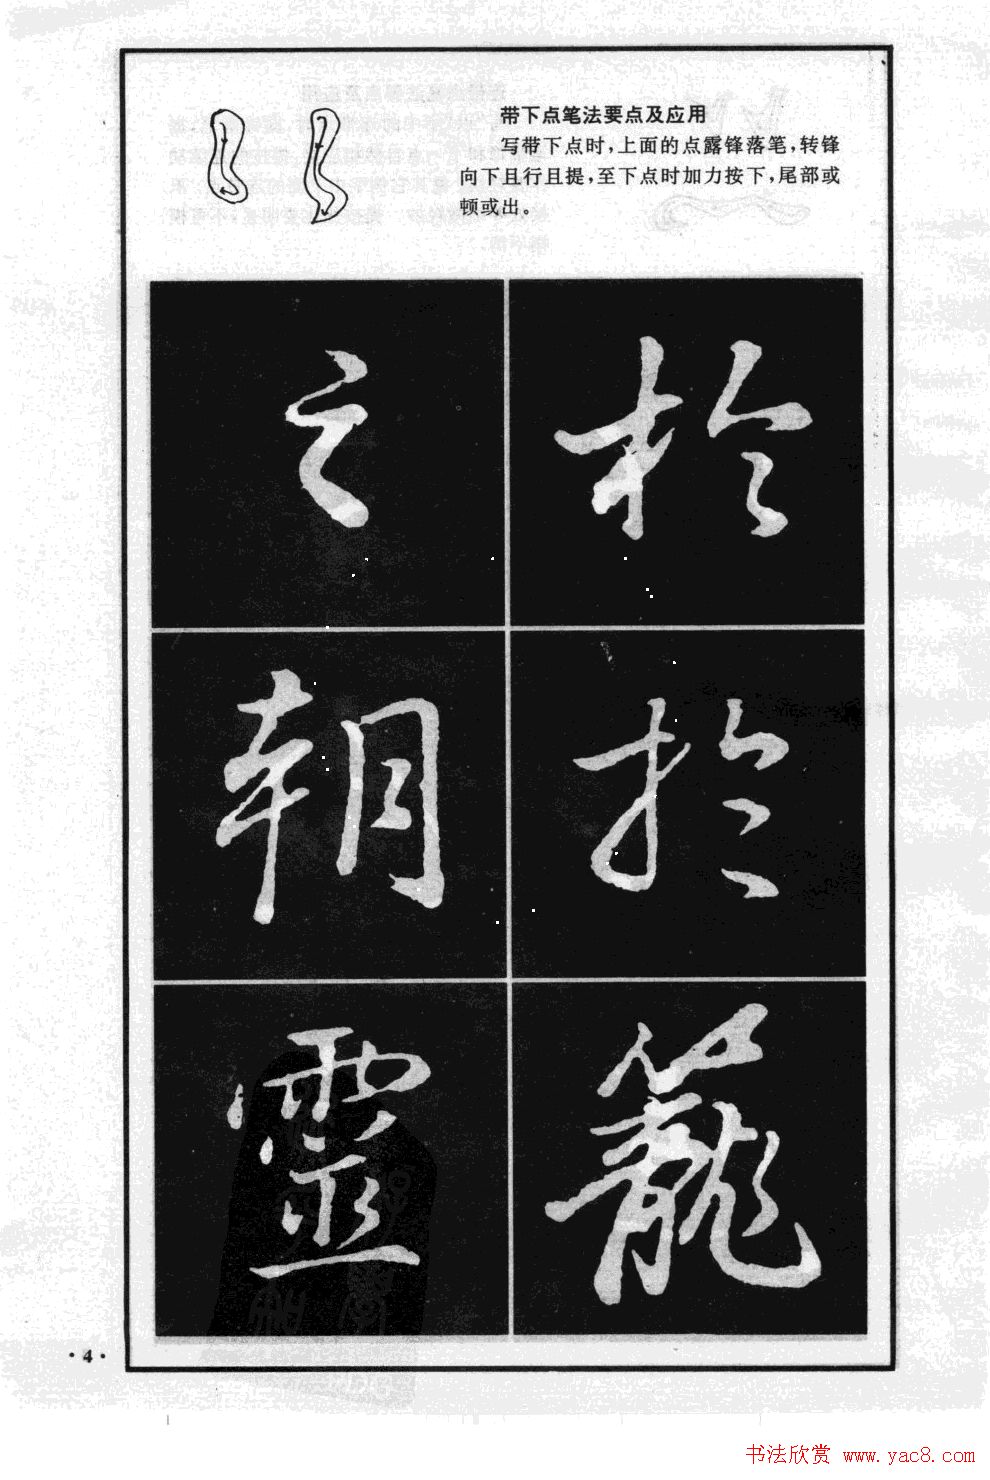 带下点笔法要点及应用
写带下点时，上面的点露锋落笔，转锋
向下且行且提，至下点时加力按下，尾部或
顿或出。
於
於
籠
之
朝
靈
·4·
书法欣赏 www.yac8.com